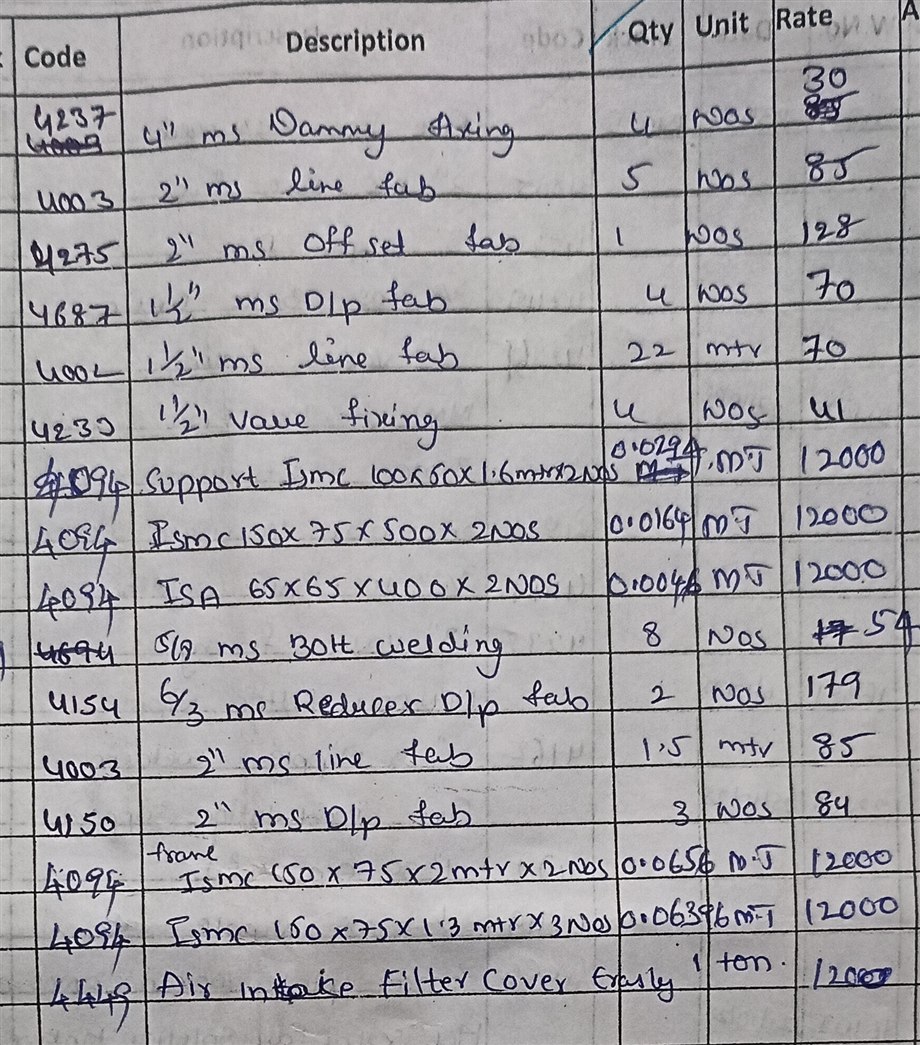 Code Description Qty Unit Rate A
30
4237 4" ms Dammy fixing 4 Nos
4003 2" ms line fab 5 Nos 85
4275 2" ms Offset fab 1 Nos 128
4687 1½" ms D/p fab 4 Nos 70
4002 1½" ms line fab 22 mtr 70
4233 1½" Vaue fixing 4 Nos 41
4094 Support Ismc 100x50x1.6mtrx2Nos 0.0294 MT 12000
4094 Ismc 150x75x500x2NOS 0.0164 MT 12000
4094 ISA 65x65x400x2NOS MT 12000
4694 5/8 ms Bolt welding 8 Nos 54
4154 6/3 ms Reducer D/p fab 2 Nos 179
4003 2" ms line fab 1.5 mtr 85
4150 2" ms D/p fab 3 Nos 84
frame
4094 Ismc 150x75x2mtrx2Nos 0.0656 M.T 12000
4094 Ismc 150x75x1.3mtrx3Nos 0.06396 M.T 12000
4449 Air Intake Filter Cover 1 ton. 12000